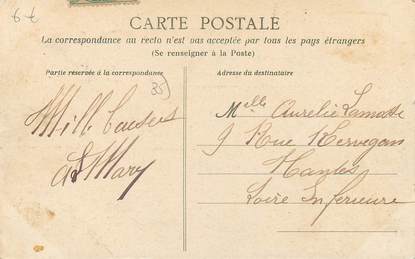 6 €
CARTE POSTALE
La correspondance au recto n'est pas acceptée par tous les pays étrangers
(Se renseigner à la Poste)
Partie réservée à la correspondance
Adresse du destinataire
35
Mill baisers
Mary
Melle Aurelie Lamasse
9 Rue Kervegan
Nantes
Loire Inferieure